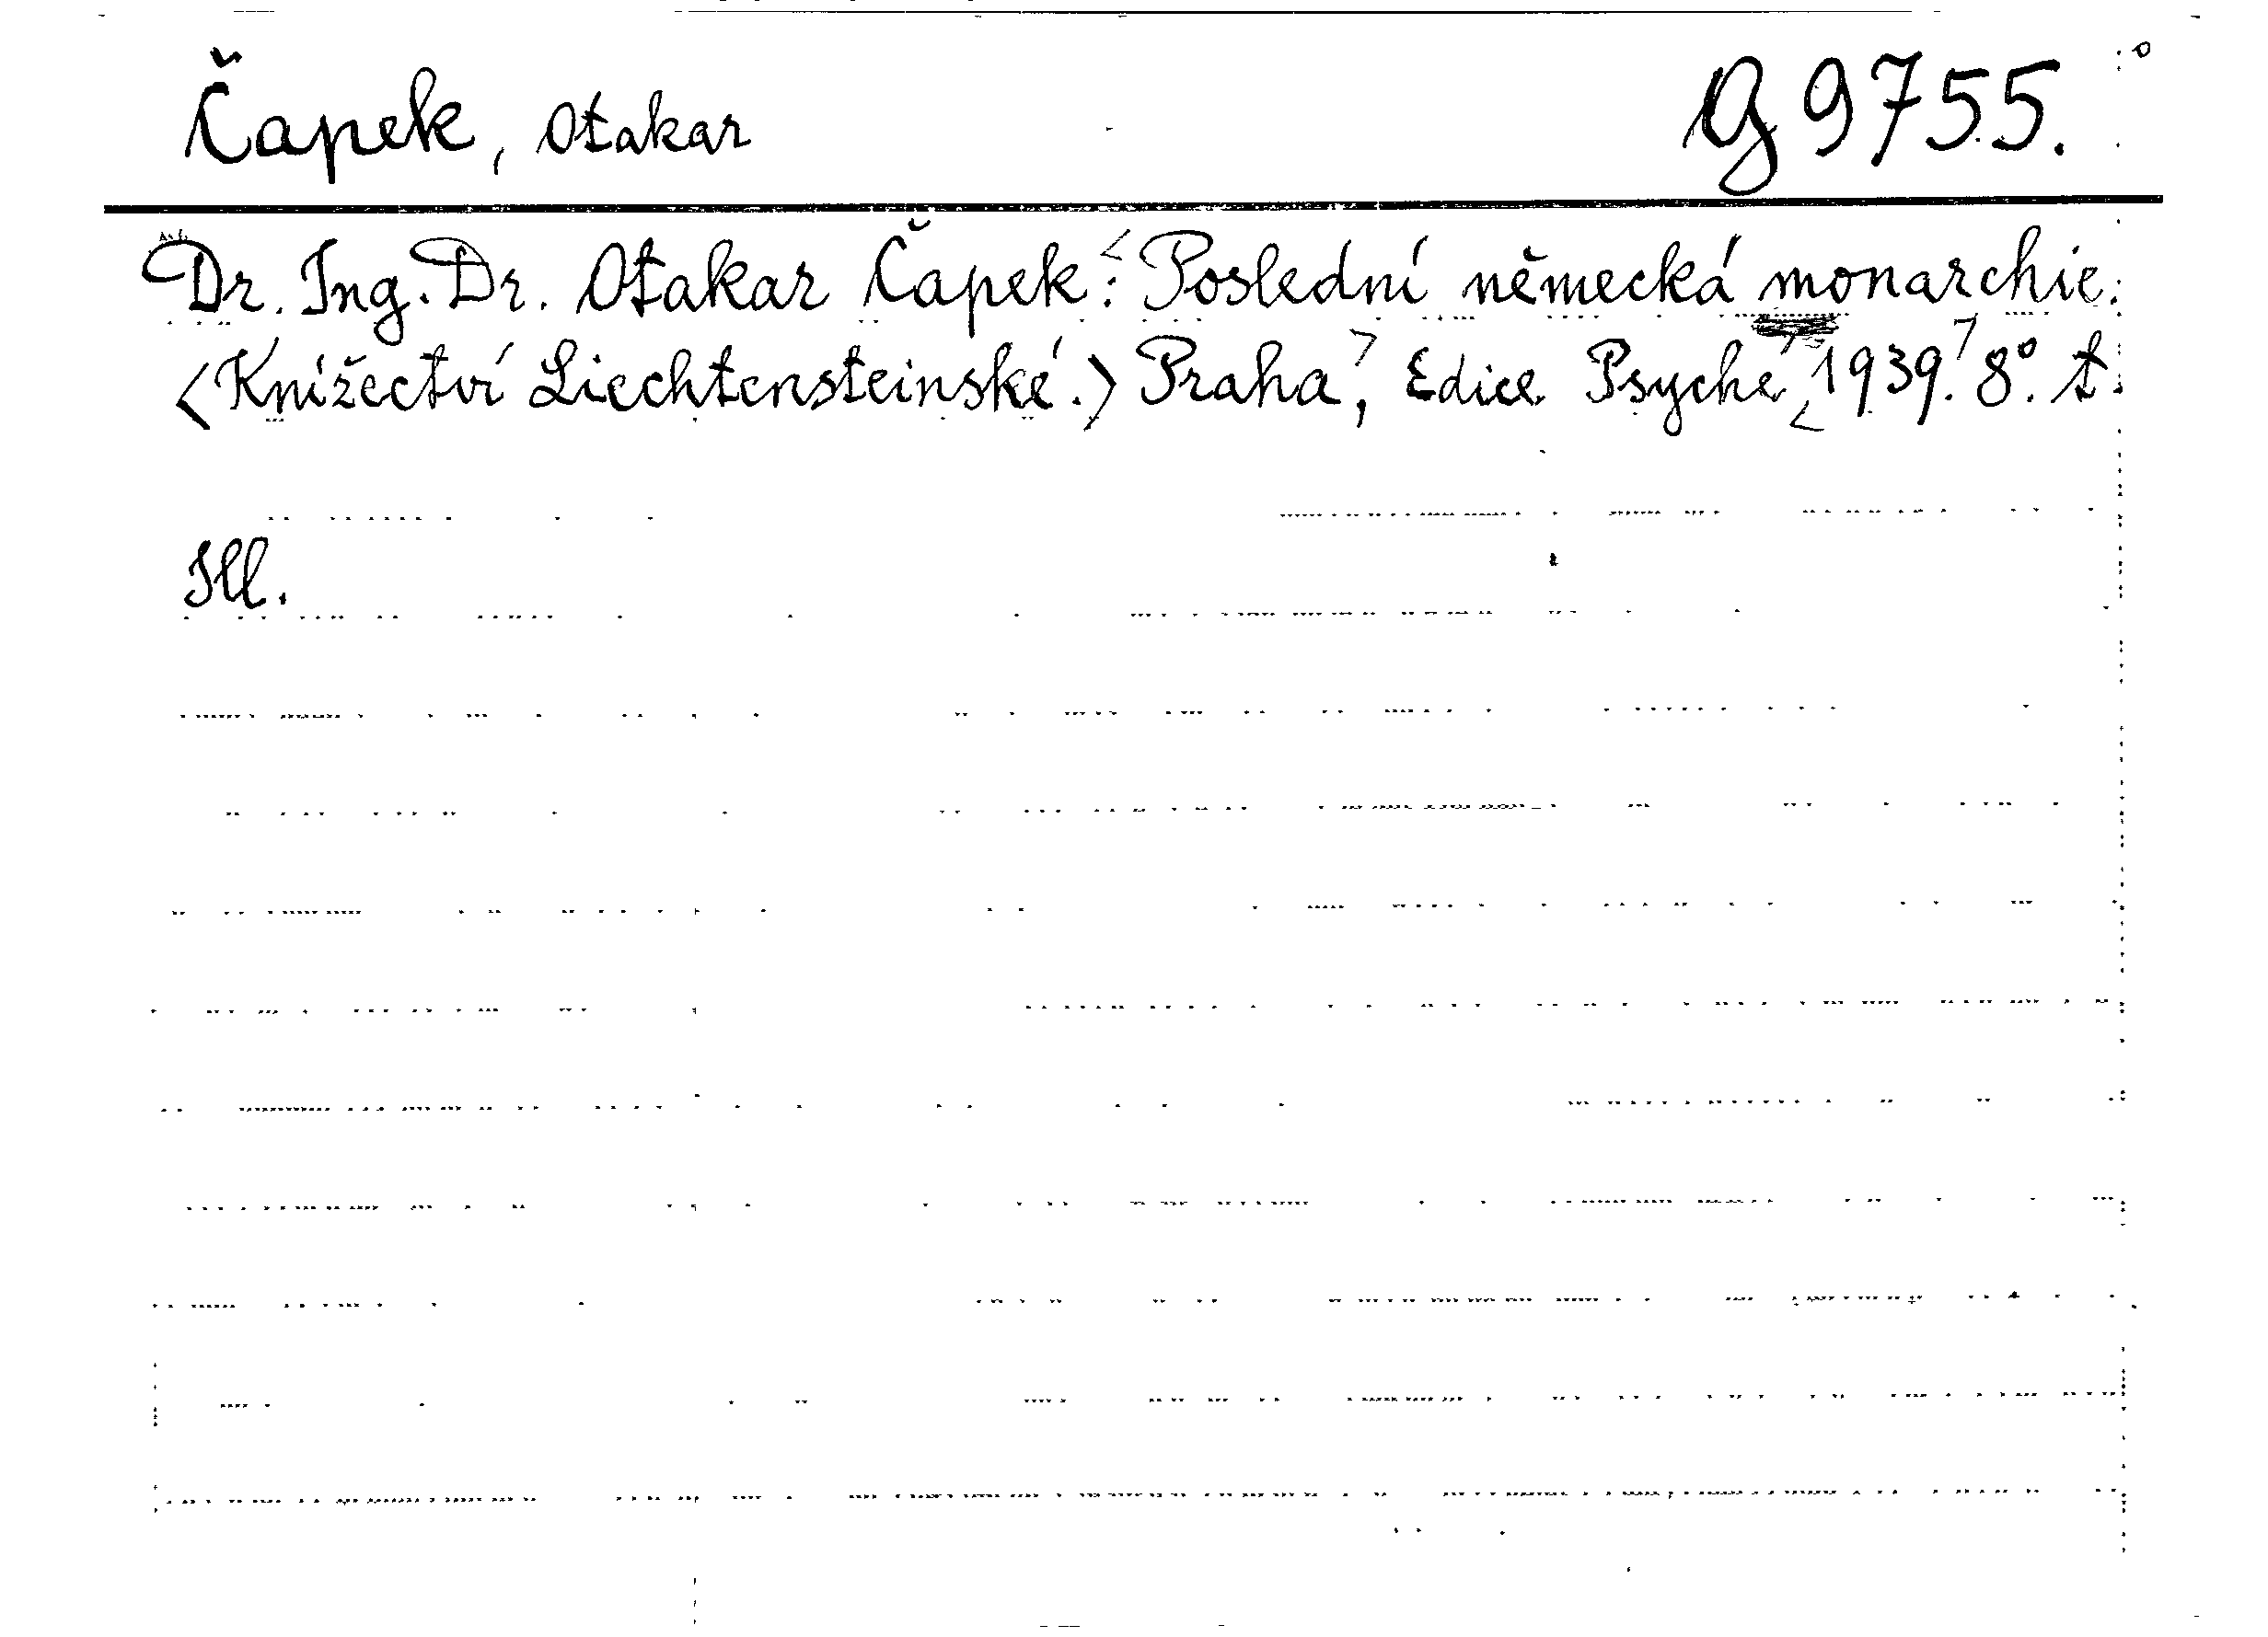 Čapek, Otakar G 9755.
Dr. Ing. Dr. Otakar Čapek: Poslední německá monarchie.
<Knížectví Liechtensteinské.> Praha, Edice Psyche 1939. 8°. t
Ill.